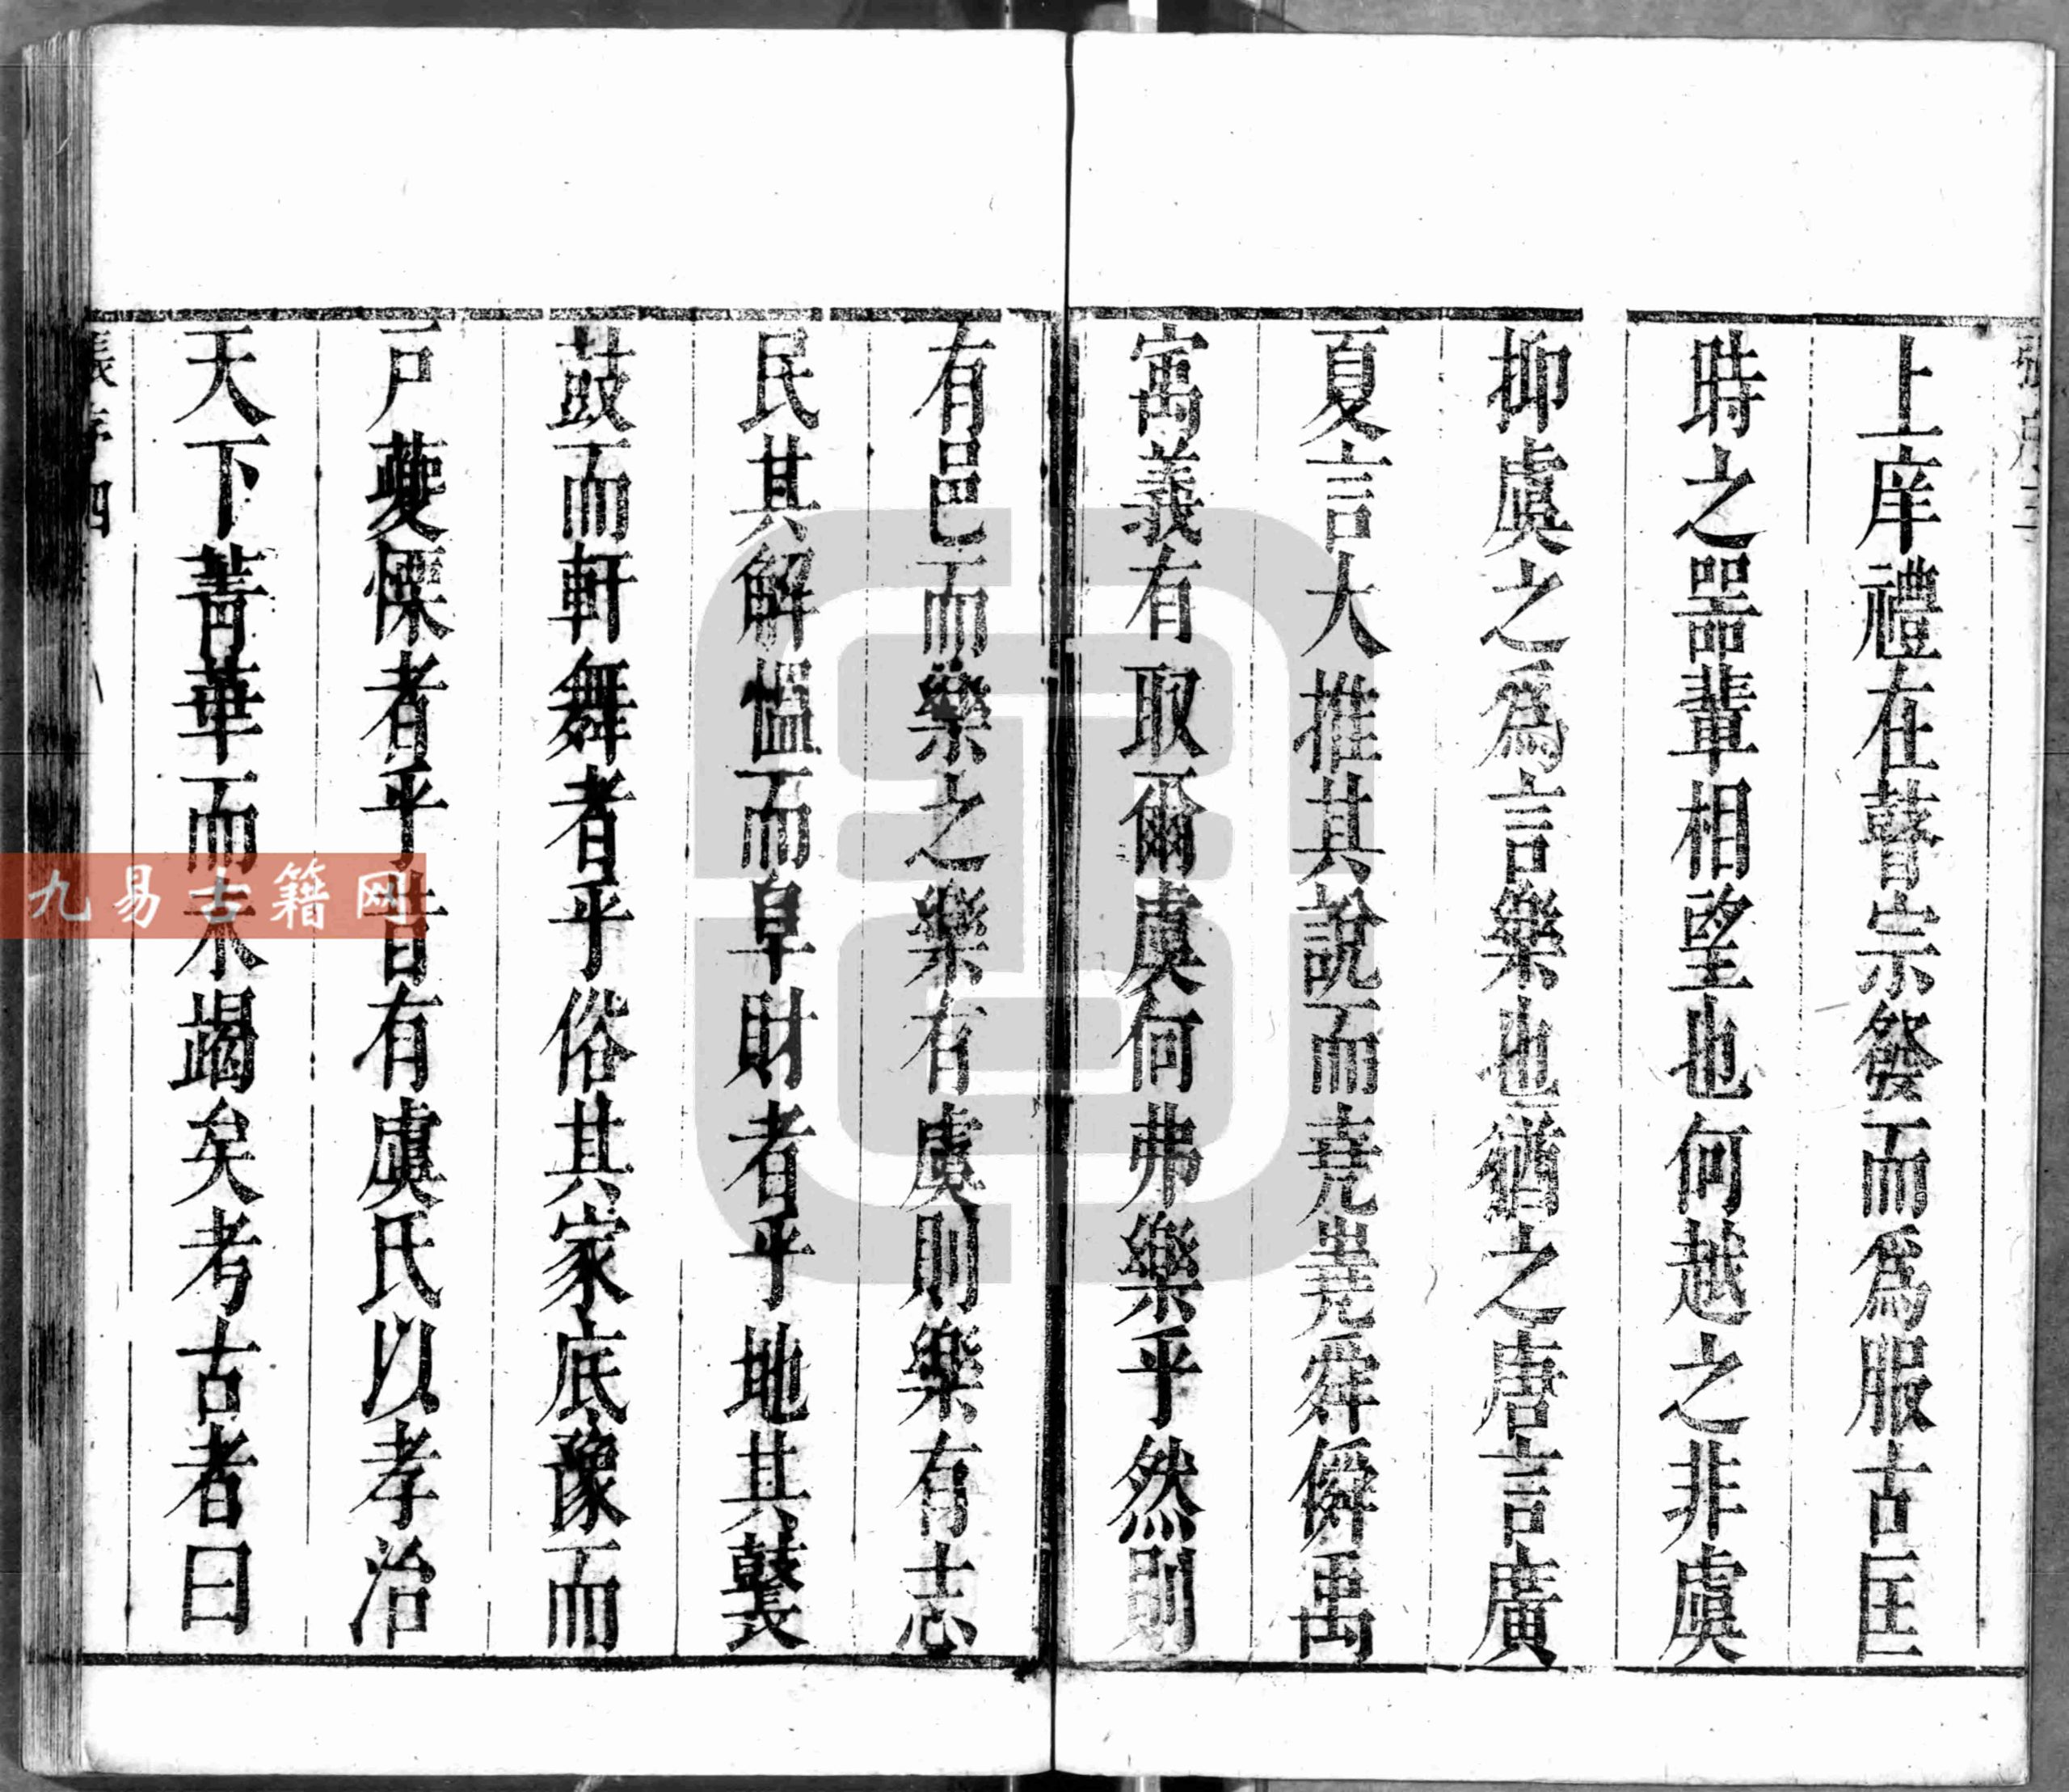 上庠禮在瞽宗發而爲服古匡
時之噐輩相望也何越之非虞
抑虞之爲言樂也猶之唐言廣
夏言大推其說而堯嘵舜僢禹
寓義有取爾虞何弗樂乎然則
有邑而樂之樂有虞則樂有志
民其解慍而阜財者乎地其鼚
鼓而軒舞者乎俗其家底豫而
戸夔慄者乎昔有虞氏以孝治
天下菁華而未竭矣考古者曰
序四
九易古籍网